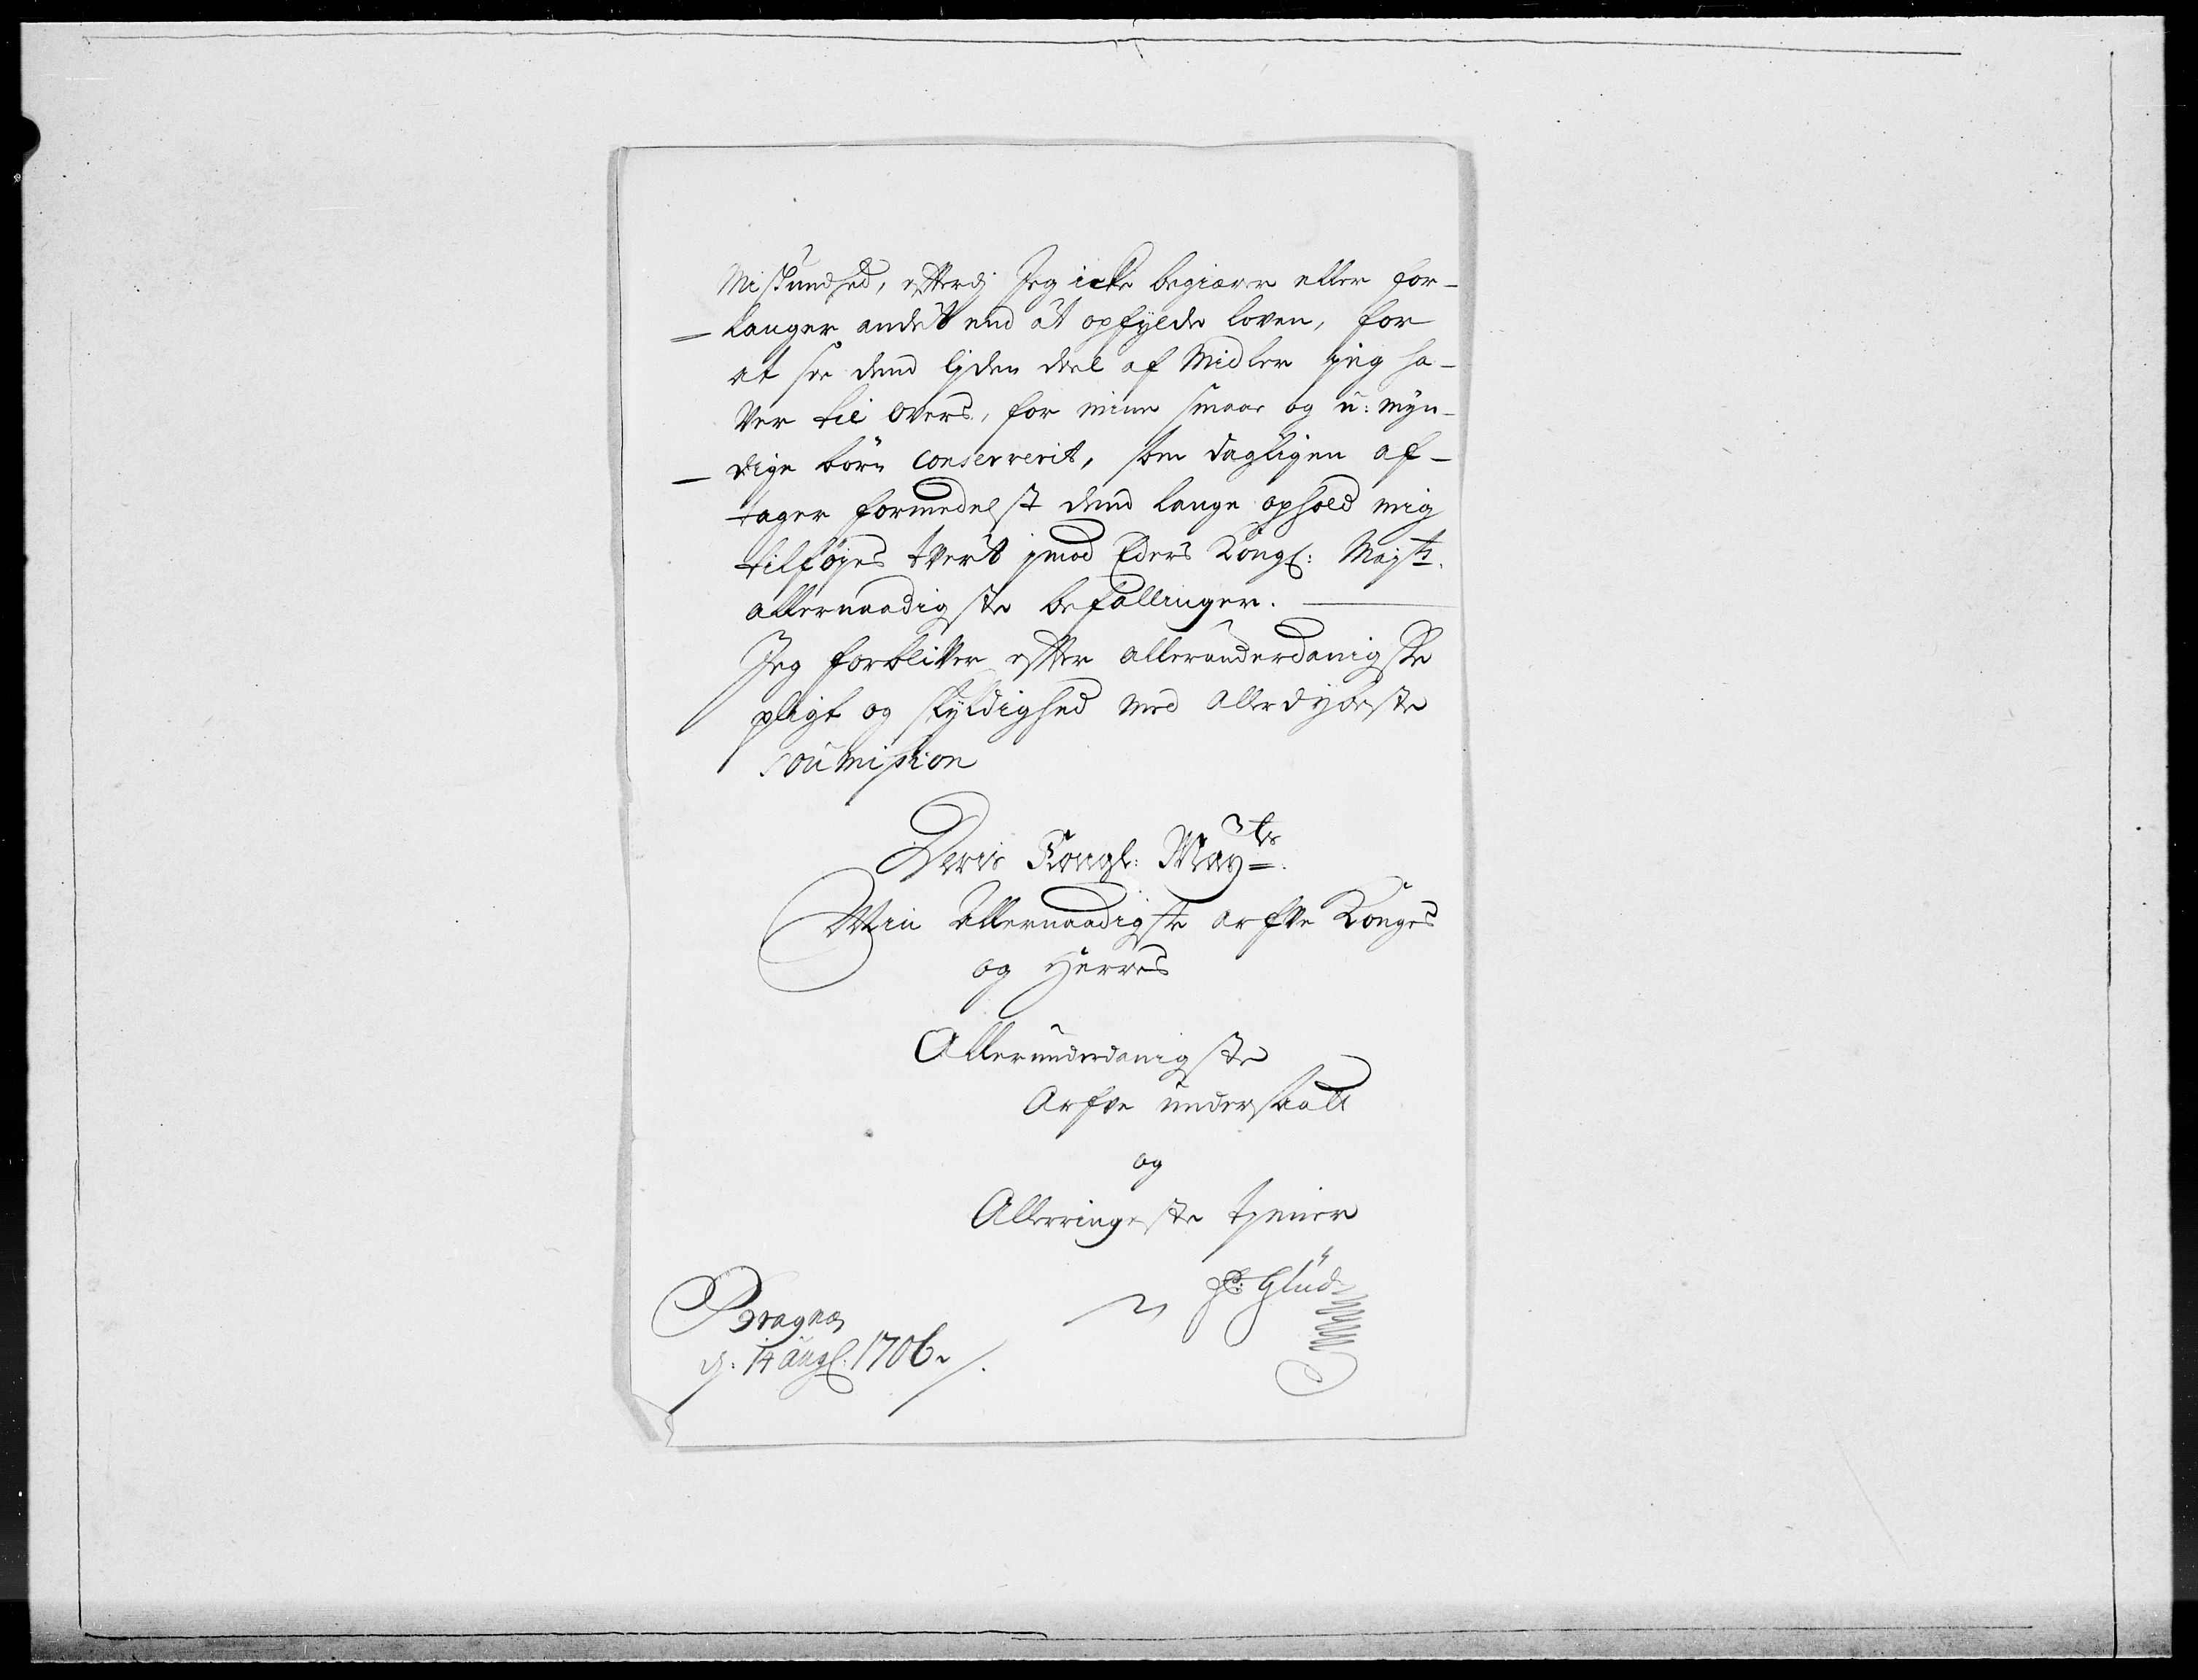 Miskundhed, efterdj Jeg icke begiærer eller for-
langer andet end at opfylde loven, for
at see dend lijden deel af Midler jeg ha-
ver til overs, for mine smaae og u: myn-
dige börn conserverit, som dagligen af-
tager formedelst dend lange ophold mig
tilföjes tvert jmod Eders Kongl: Majts.
allernaadigste befallinger.
Jeg forbliver efter allerunderdanigste
pligt og skyldighed med allerdybeste
soumission
Deris Kongl: Mayts.
Min Allernaadigste arfve Konges
og Herres
Allerunderdanigste
Arfve undersaatt
og
Allerringeste tjener
Glud
Bragnes
d: 14 augl: 1706.